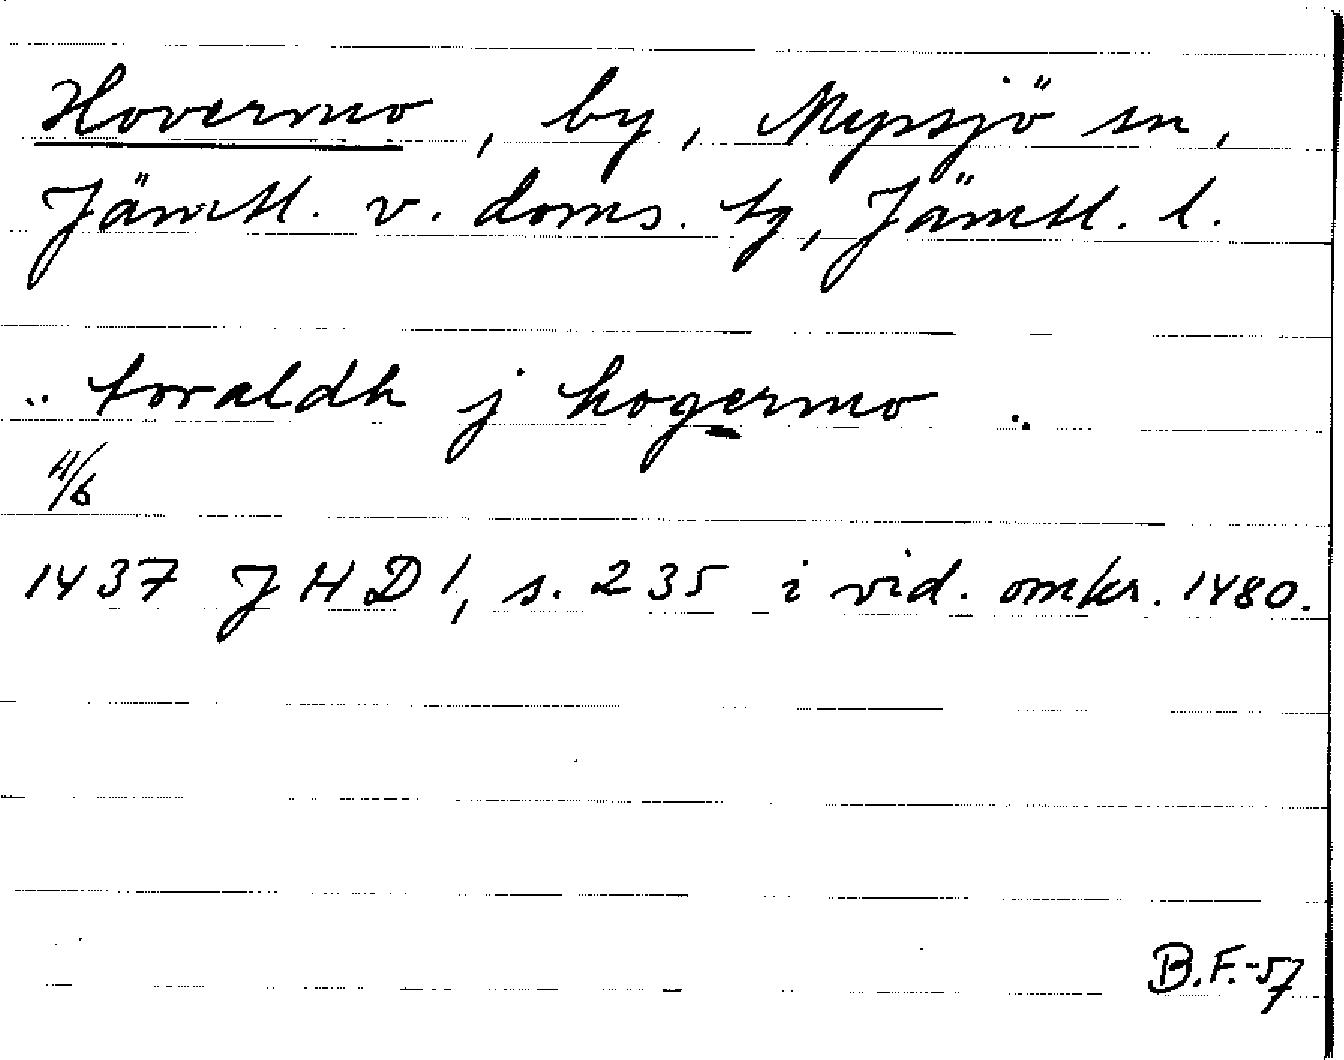 Hovermo, by, Myssjö sn,
Jämtl. v. doms. tg, Jämtl. l.
.. toraldh j hogermo ..
11/6
1437 JHD 1, s. 235 i vid. omkr. 1480.
B.F.-57